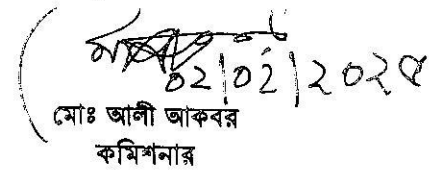 ০২|০২|২০২৫
মোঃ আলী আকবর
কমিশনার